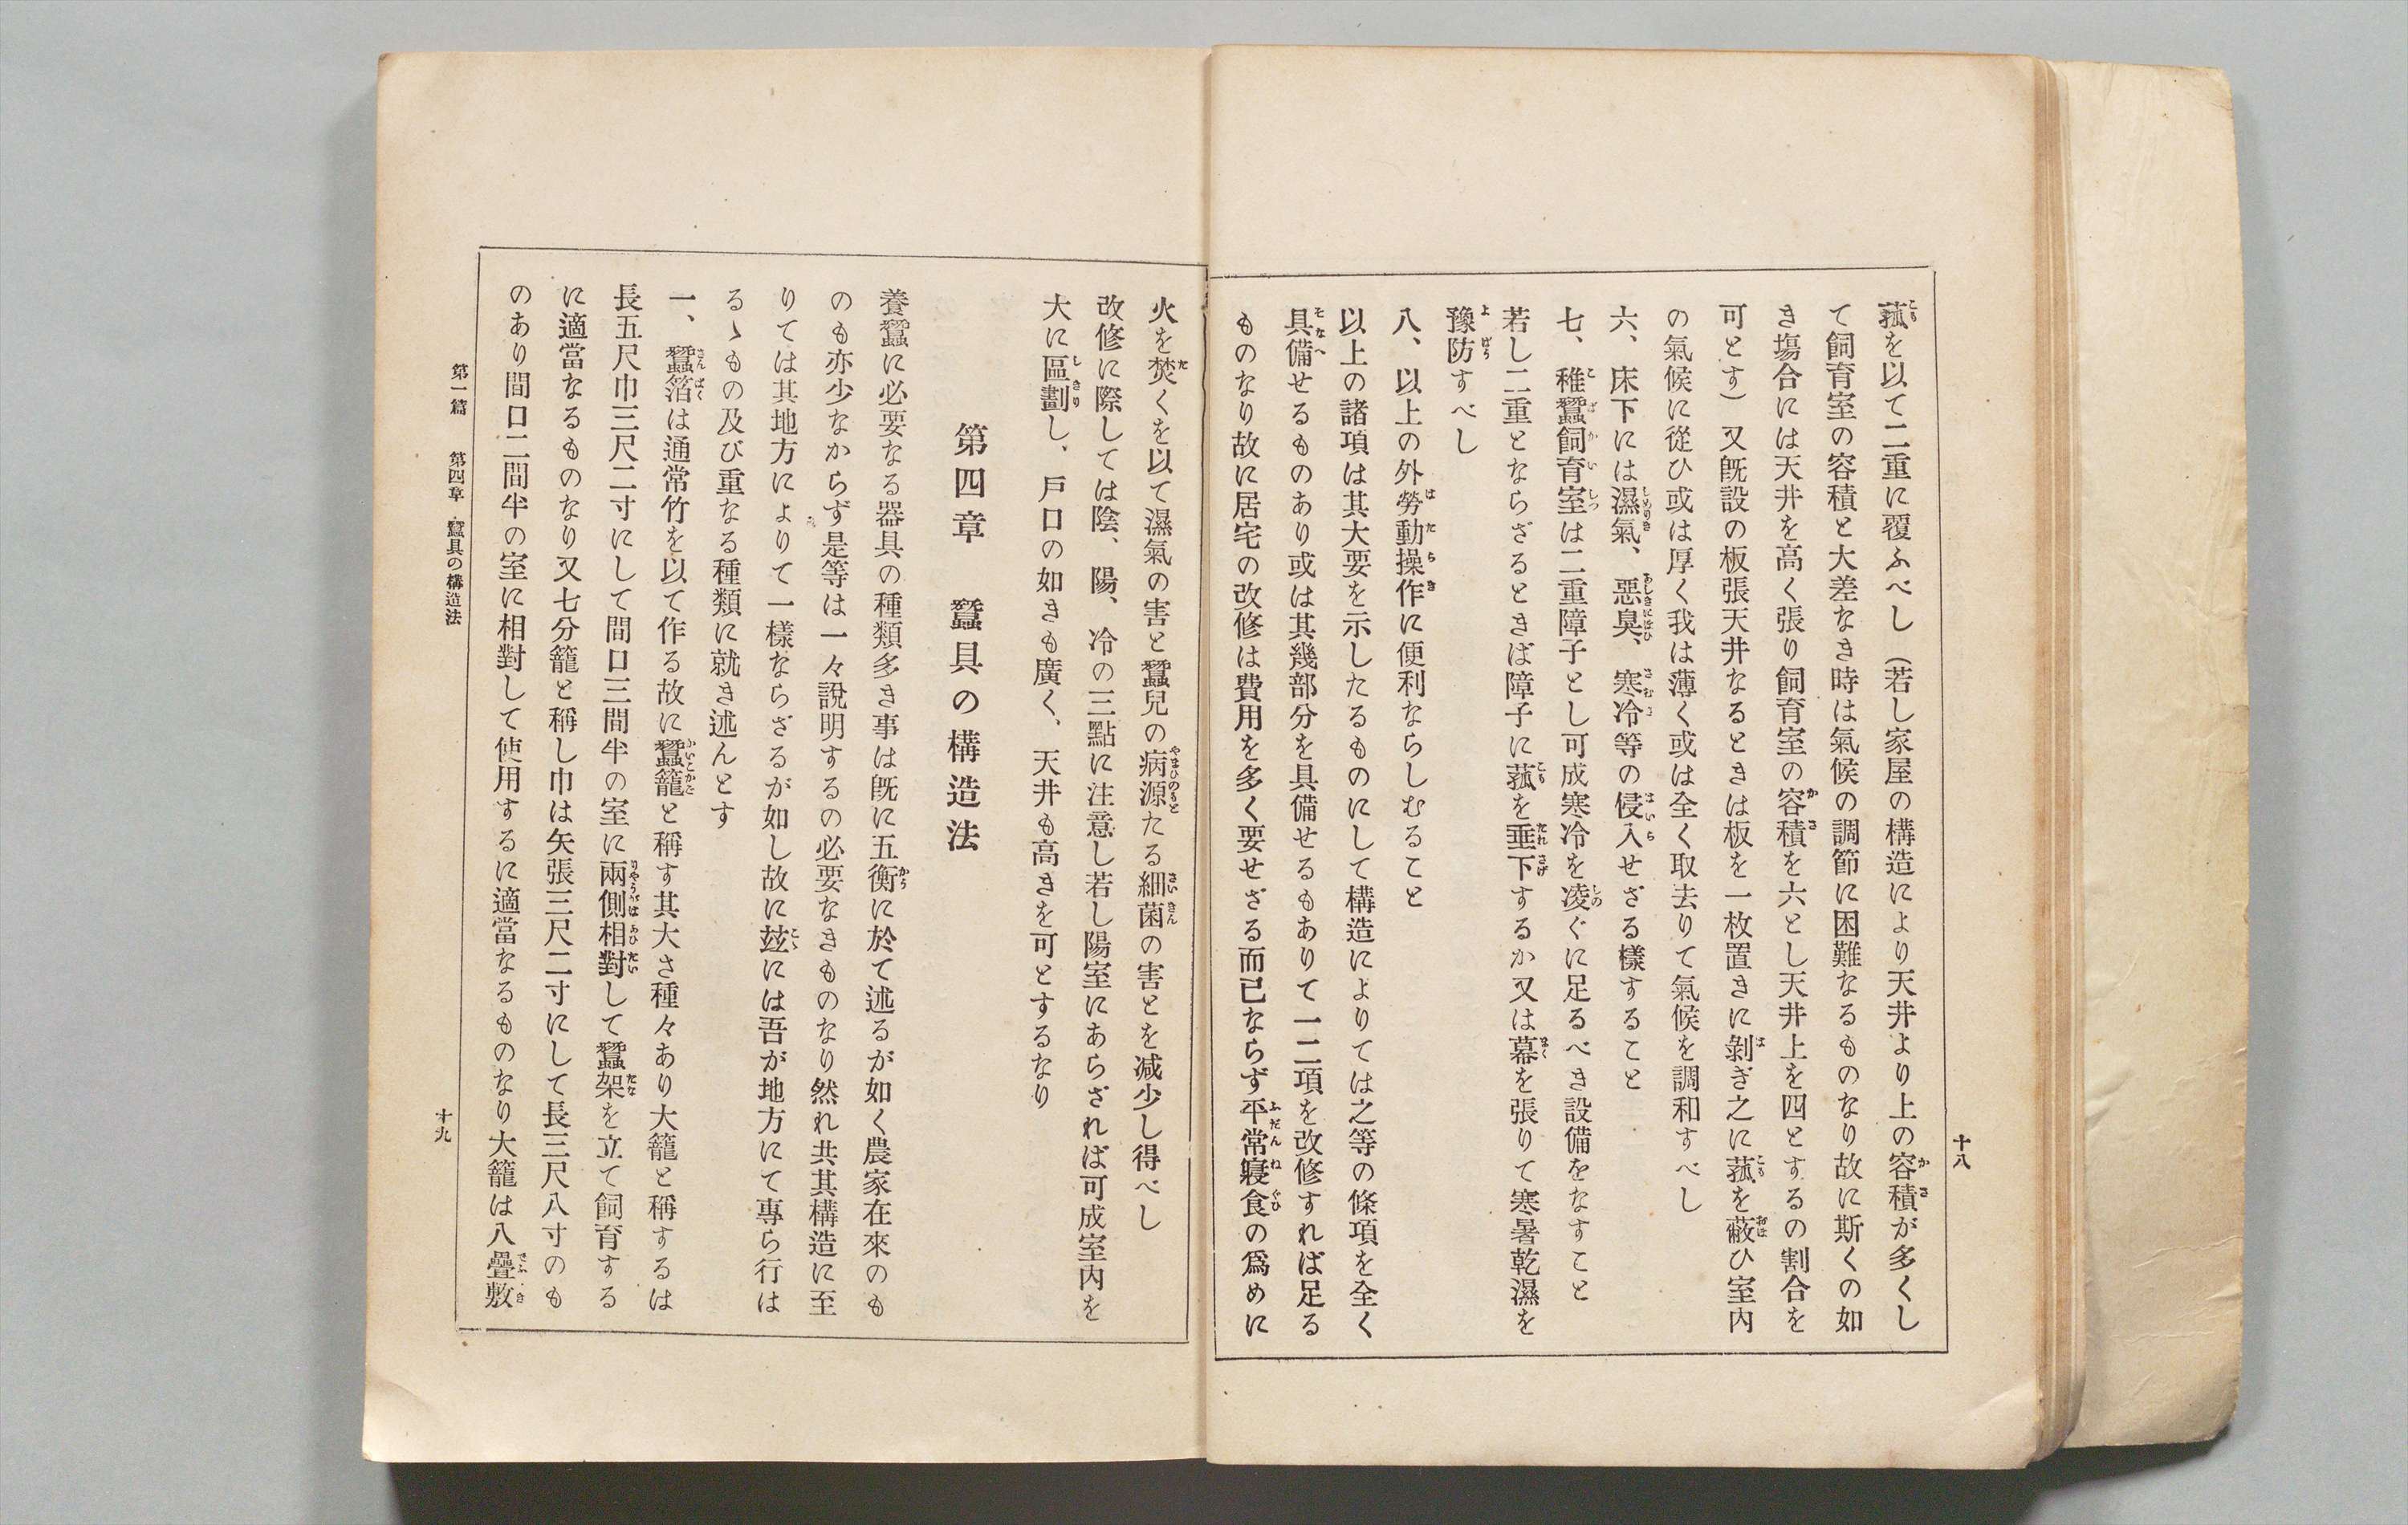 菰を以て二重に覆ふべし（若し家屋の構造により天井より上の容積が多くし
て飼育室の容積と大差なき時は氣候の調節に困難なるものなり故に斯くの如
き塲合には天井を高く張り飼育室の容積を六とし天井上を四とするの割合を
可とす）又旣設の板張天井なるときは板を一枚置きに剝ぎ之に菰を蔽ひ室內
の氣候に從ひ或は厚く我は薄く或は全く取去りて氣候を調和すべし
六、床下には濕氣、惡臭、寒冷等の侵入せざる樣すること
七、稚蠶飼育室は二重障子とし可成寒冷を凌ぐに足るべき設備をなすこと
若し二重とならざるときば障子に菰を垂下するか又は幕を張りて寒暑乾濕を
豫防すべし
八、以上の外勞動操作に便利ならしむること
以上の諸項は其大要を示したるものにして構造によりては之等の條項を全く
具備せるものあり或は其幾部分を具備せるもありて一二項を改修すれば足る
ものなり故に居宅の改修は費用を多く要せざる而已ならず平常寢食の爲めに
十八
火を焚くを以て濕氣の害と蠶兒の病源たる細菌の害とを减少し得べし
改修に際しては陰、陽、冷の三點に注意し若し陽室にあらざれば可成室內を
大に區劃し、戶口の如きも廣く、天井も高きを可とするなり
第四章　蠶具の構造法
養蠶に必要なる器具の種類多き事は旣に五衡に於て述るが如く農家在來のも
のも亦少なからず是等は一々說明するの必要なきものなり然れ共其構造に至
りては其地方によりて一樣ならざるが如し故に玆には吾が地方にて專ら行は
るゝもの及び重なる種類に就き述んとす
一、蠶箔は通常竹を以て作る故に蠶籠と稱す其大さ種々あり大籠と稱するは
長五尺巾三尺二寸にして間口三間半の室に兩側相對して蠶架を立て飼育する
に適當なるものなり又七分籠と稱し巾は矢張三尺二寸にして長三尺八寸のも
のあり間口二間半の室に相對して使用するに適當なるものなり大籠は八疊敷
第一篇　第四章　蠶具の構造法
十九